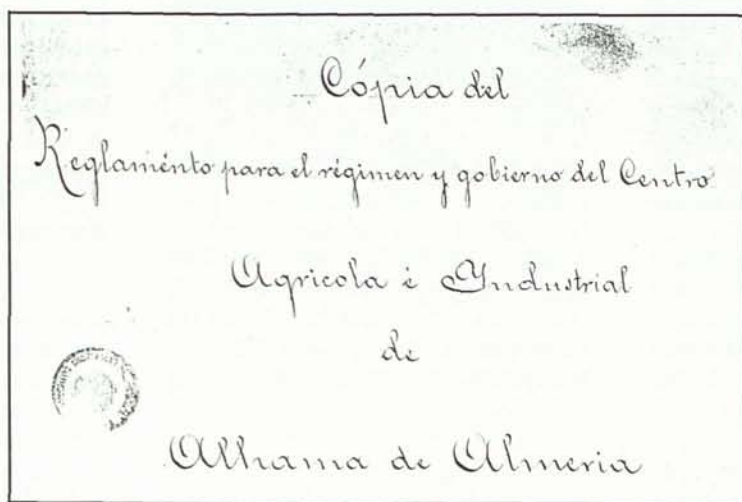 Cópia del
Reglaménto para el régimen y gobierno del Centro
Agricola è Yndustrial
de
Alhama de Almeria